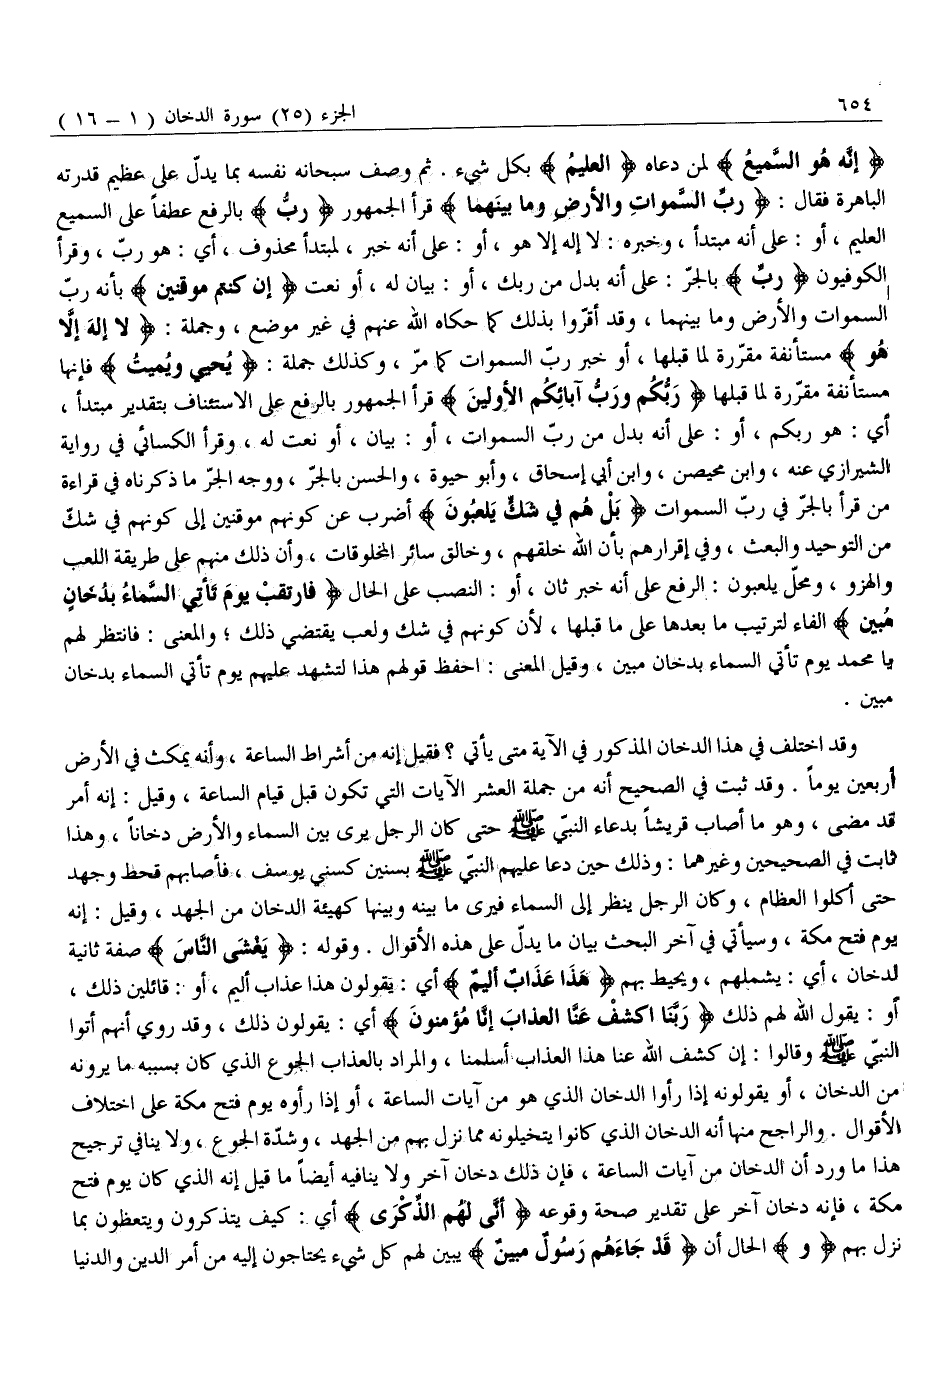 ٦٥٤
الجزء (٢٥) سورة الدخان (١ – ١٦)
﴿ إنَّه هُوَ السَّميعُ ﴾ لمن دعاه ﴿ العليمُ ﴾ بكل شيء . ثم وصف سبحانه نفسه بما يدلّ على عظيم قدرته
الباهرة فقال : ﴿ ربِّ السَّمواتِ والأرضِ وما بينَهما ﴾ قرأ الجمهور ﴿ ربُّ ﴾ بالرفع عطفاً على السميع
العليم ، أو : على أنه مبتدأ ، وخبره : لا إله إلا هو ، أو : على أنه خبر ، لمبتدأ محذوف ، أي : هو ربّ ، وقرأ
الكوفيون ﴿ ربِّ ﴾ بالجرّ : على أنه بدل من ربك ، أو : بيان له ، أو نعت ﴿ إن كنتم موقنين ﴾ بأنه ربّ
السموات والأرض وما بينهما ، وقد أقرّوا بذلك كما حكاه الله عنهم في غير موضع ، وجملة : ﴿ لا إلهَ إلَّا
هُو ﴾ مستأنفة مقرّرة لما قبلها ، أو خبر ربّ السموات كما مرّ ، وكذلك جملة : ﴿ يُحيي ويُميتُ ﴾ فإنها
مستأنفة مقرّرة لما قبلها ﴿ رَبُّكُم ورَبُّ آبائِكُم الأولينَ ﴾ قرأ الجمهور بالرفع على الاستئناف بتقدير مبتدأ ،
أي : هو ربكم ، أو : على أنه بدل من ربّ السموات ، أو : بيان ، أو نعت له ، وقرأ الكسائي في رواية
الشيرازي عنه ، وابن محيصن ، وابن أبي إسحاق ، وأبو حيوة ، والحسن بالجرّ ، ووجه الجرّ ما ذكرناه في قراءة
من قرأ بالجرّ في ربّ السموات ﴿ بَلْ هُم في شكٍّ يَلعبُونَ ﴾ أضرب عن كونهم موقنين إلى كونهم في شكّ
من التوحيد والبعث ، وفي إقرارهم بأن الله خلقهم ، وخالق سائر المخلوقات ، وأن ذلك منهم على طريقة اللعب
والهزو ، ومحلّ يلعبون : الرفع على أنه خبر ثان ، أو : النصب على الحال ﴿ فارتقبْ يومَ تَأتِي السَّماءُ بدُخَانٍ
مُبين ﴾ الفاء لترتيب ما بعدها على ما قبلها ، لأن كونهم في شك ولعب يقتضي ذلك ؛ والمعنى : فانتظر لهم
يا محمد يوم تأتي السماء بدخان مبين ، وقيل المعنى : احفظ قولهم هذا لتشهد عليهم يوم تأتي السماء بدخان
مبين .
وقد اختلف في هذا الدخان المذكور في الآية متى يأتي ؟ فقيل إنه من أشراط الساعة ، وأنه يمكث في الأرض
أربعين يوماً . وقد ثبت في الصحيح أنه من جملة العشر الآيات التي تكون قبل قيام الساعة ، وقيل : إنه أمر
قد مضى ، وهو ما أصاب قريشاً بدعاء النبيّ ﷺ حتى كان الرجل يرى بين السماء والأرض دخاناً ، وهذا
ثابت في الصحيحين وغيرهما : وذلك حين دعا عليهم النبيّ ﷺ بسنين كسني يوسف ، فأصابهم قحط وجهد
حتى أكلوا العظام ، وكان الرجل ينظر إلى السماء فيرى ما بينه وبينها كهيئة الدخان من الجهد ، وقيل : إنه
يوم فتح مكة ، وسيأتي في آخر البحث بيان ما يدلّ على هذه الأقوال . وقوله : ﴿ يَغْشى النَّاسَ ﴾ صفة ثانية
لدخان ، أي : يشملهم ، ويحيط بهم ﴿ هَذَا عَذَابٌ أليمٌ ﴾ أي : يقولون هذا عذاب أليم ، أو : قائلين ذلك ،
أو : يقول الله لهم ذلك ﴿ رَبَّنَا اكشفْ عَنَّا العذابَ إنَّا مُؤمنونَ ﴾ أي : يقولون ذلك ، وقد روي أنهم أتوا
النبيّ ﷺ وقالوا : إن كشف الله عنا هذا العذاب أسلمنا ، والمراد بالعذاب الجوع الذي كان بسببه ما يرونه
من الدخان ، أو يقولونه إذا رأوا الدخان الذي هو من آيات الساعة ، أو إذا رأوه يوم فتح مكة على اختلاف
الأقوال . والراجح منها أنه الدخان الذي كانوا يتخيلونه مما نزل بهم من الجهد ، وشدّة الجوع ، ولا ينافي ترجيح
هذا ما ورد أن الدخان من آيات الساعة ، فإن ذلك دخان آخر ولا ينافيه أيضاً ما قيل إنه الذي كان يوم فتح
مكة ، فإنه دخان آخر على تقدير صحة وقوعه ﴿ أنَّى لَهُم الذِّكْرَى ﴾ أي : كيف يتذكرون ويتعظون بما
نزل بهم ﴿ و ﴾ الحال أن ﴿ قَدْ جَاءَهُم رَسُولٌ مبينٌ ﴾ يبين لهم كل شيء يحتاجون إليه من أمر الدين والدنيا